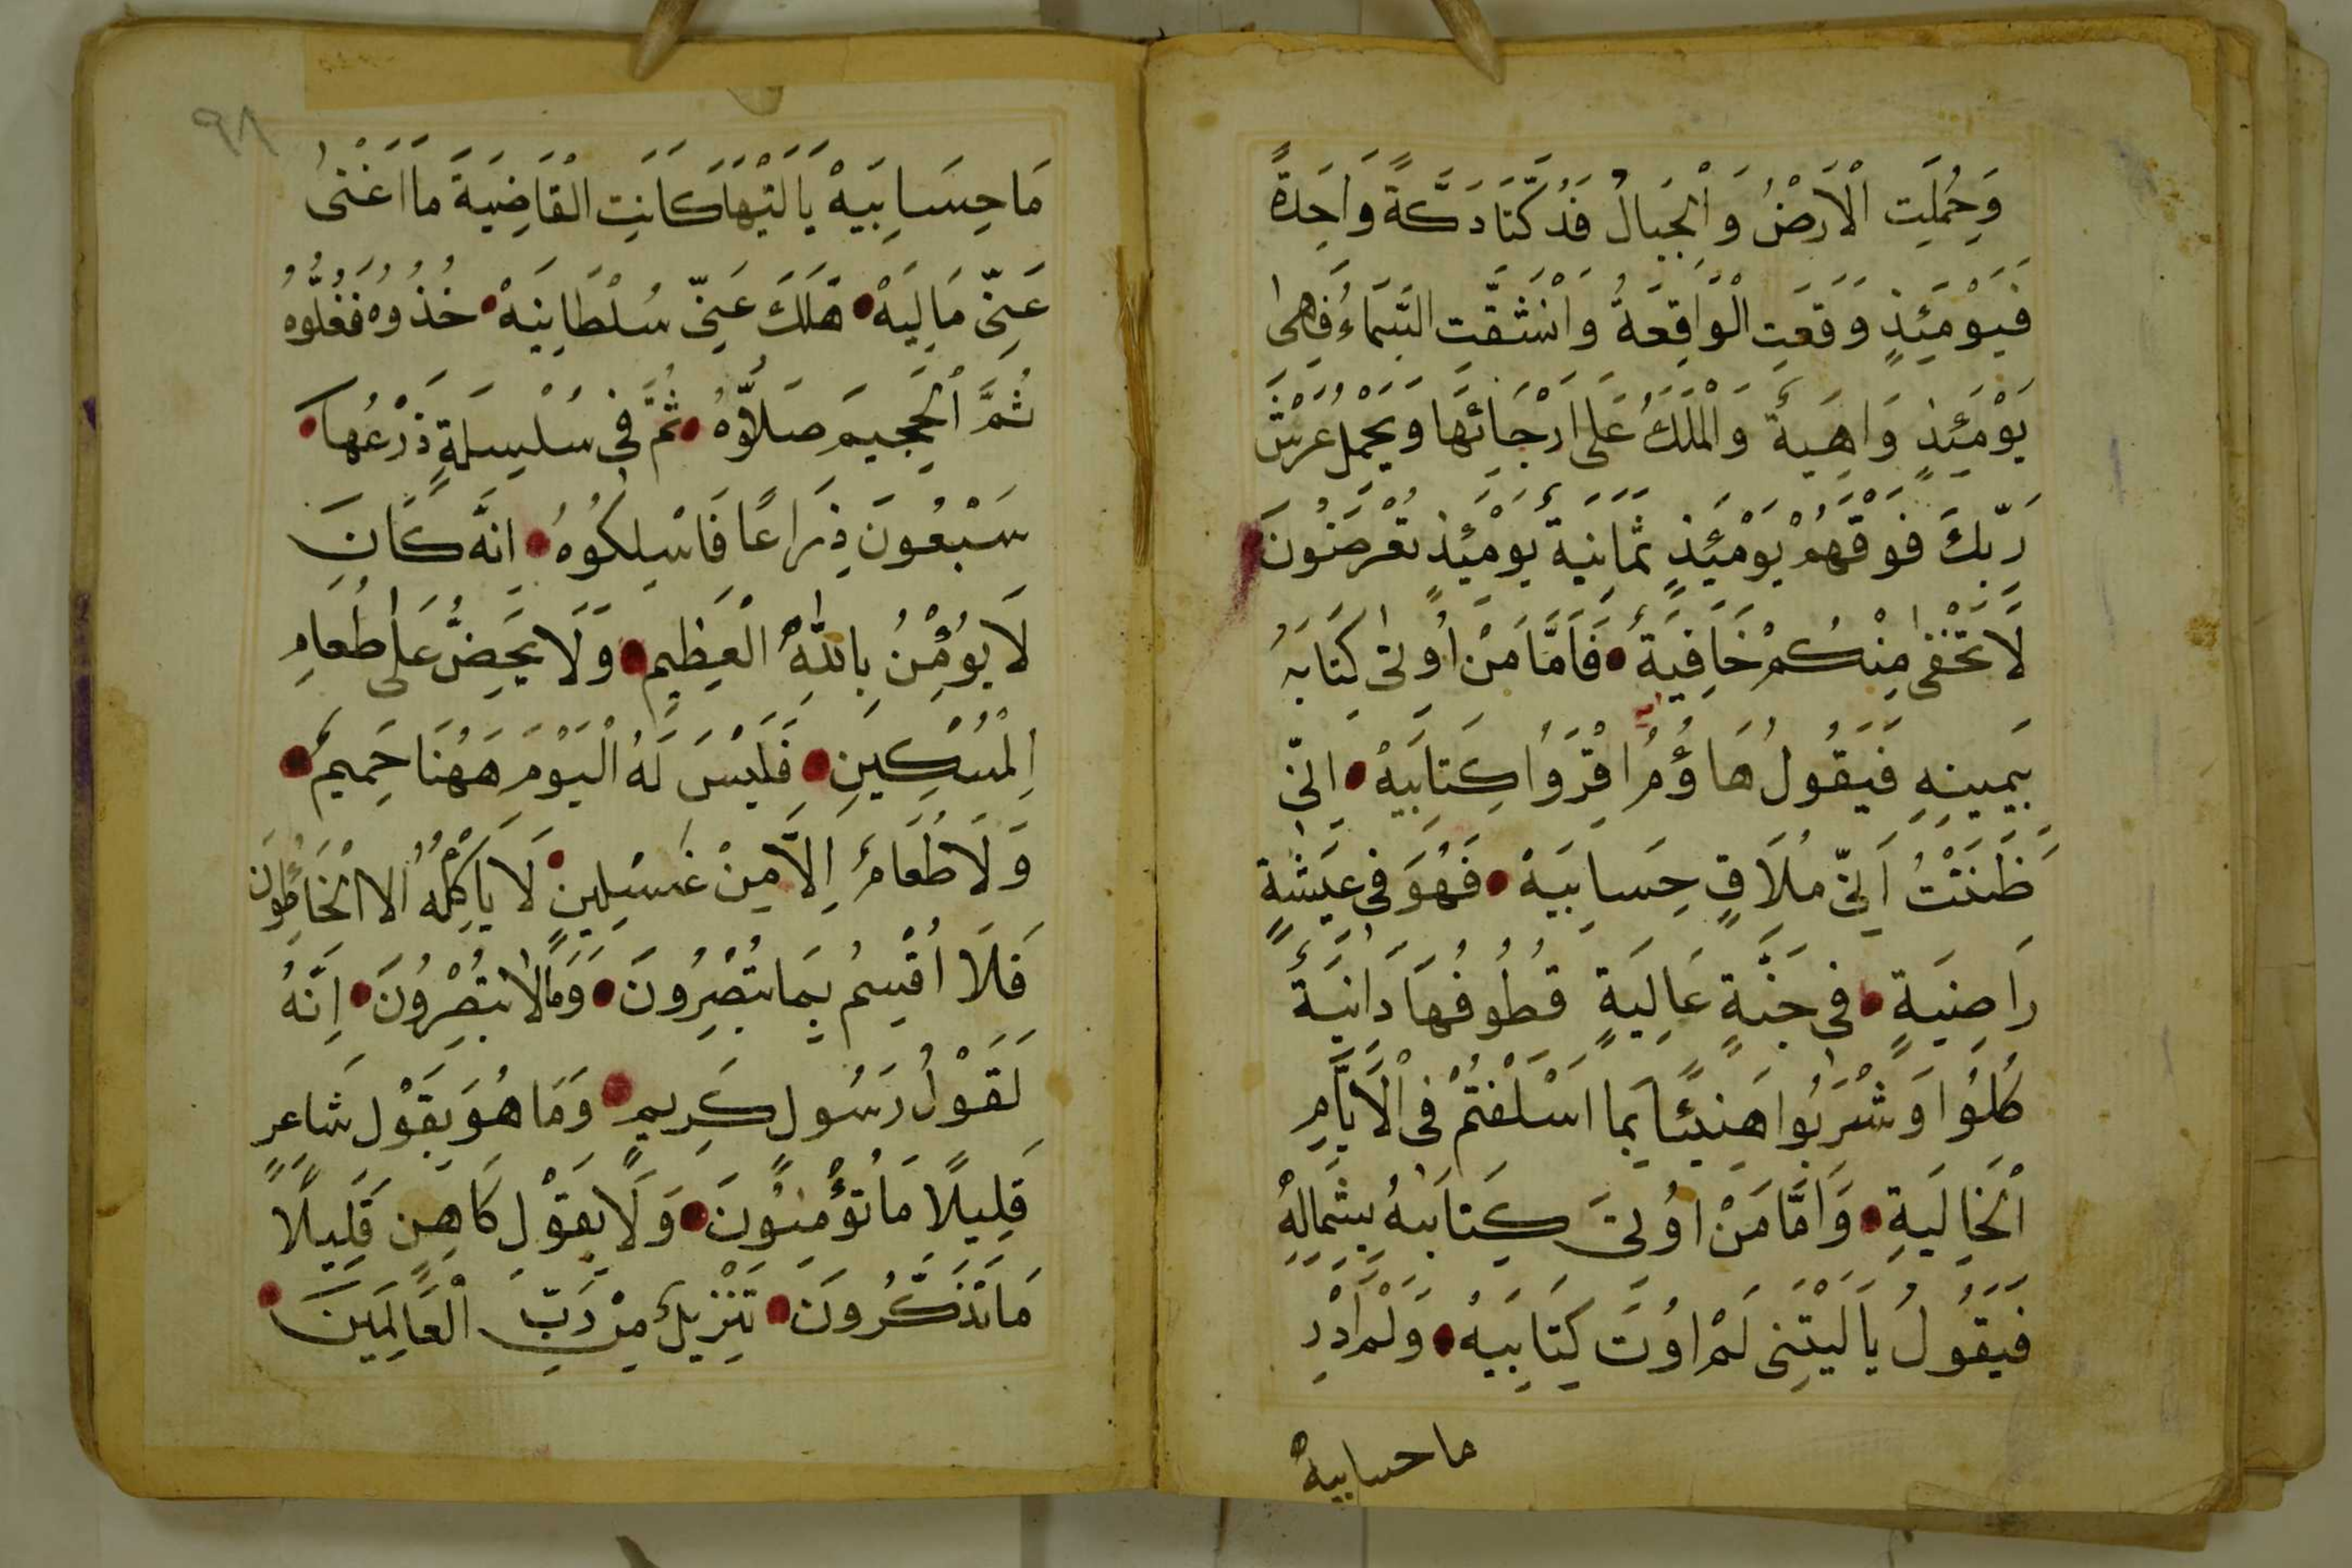 وَحُمِلَتِ الْاَرْضُ وَالْجِبَالُ فَدُكَّتَا دَكَّةً وَاحِدَةً
فَيَوْمَئِذٍ وَقَعَتِ الْوَاقِعَةُ وَانْشَقَّتِ السَّمَاءُ فَهِىَ
يَوْمَئِذٍ وَاهِيَةٌ وَالْمَلَكُ عَلٰى اَرْجَائِهَا وَيَحْمِلُ عَرْشَ
رَبِّكَ فَوْقَهُمْ يَوْمَئِذٍ ثَمَانِيَةٌ يَوْمَئِذٍ تُعْرَضُونَ
لَا تَخْفٰى مِنْكُمْ خَافِيَةٌ فَاَمَّا مَنْ اُوتِىَ كِتَابَهُ
بِيَمِينِهِ فَيَقُولُ هَاؤُمُ اقْرَؤُا كِتَابِيَهْ اِنِّى
ظَنَنْتُ اَنِّى مُلَاقٍ حِسَابِيَهْ فَهُوَ فِى عِيشَةٍ
رَاضِيَةٍ فِى جَنَّةٍ عَالِيَةٍ قُطُوفُهَا دَانِيَةٌ
كُلُوا وَشْرَبُوا هَنِيئًا بِمَا اَسْلَفْتُمْ فِى الْاَيَّامِ
الْخَالِيَةِ وَاَمَّا مَنْ اُوتِىَ كِتَابَهُ بِشِمَالِهِ
فَيَقُولُ يَا لَيْتَنِى لَمْ اُوتَ كِتَابِيَهْ وَلَمْ اَدْرِ
ما حسابيهْ
٩٨
مَا حِسَابِيَهْ يَا لَيْتَهَا كَانَتِ الْقَاضِيَةَ مَا اَغْنٰى
عَنِّى مَالِيَهْ هَلَكَ عَنِّى سُلْطَانِيَهْ خُذُوهُ فَغُلُّوهُ
ثُمَّ الْجَحِيمَ صَلُّوهُ ثُمَّ فِى سِلْسِلَةٍ ذَرْعُهَا
سَبْعُونَ ذِرَاعًا فَاسْلُكُوهُ اِنَّهُ كَانَ
لَا يُؤْمِنُ بِاللّٰهِ الْعَظِيمِ وَلَا يَحُضُّ عَلٰى طَعَامِ
الْمِسْكِينِ فَلَيْسَ لَهُ الْيَوْمَ هَهُنَا حَمِيمٌ
وَلَا طَعَامٌ اِلَّا مِنْ غِسْلِينٍ لَا يَاْكُلُهُ اِلَّا الْخَاطِؤُنَ
فَلَا اُقْسِمُ بِمَا تُبْصِرُونَ وَمَالَا تُبْصِرُونَ اِنَّهُ
لَقَوْلُ رَسُولٍ كَرِيمٍ وَمَا هُوَ بِقَوْلِ شَاعِرٍ
قَلِيلًا مَا تُؤْمِنُونَ وَلَا بِقَوْلِ كَاهِنٍ قَلِيلًا
مَا تَذَكَّرُونَ تَنْزِيلٌ مِنْ رَبِّ الْعَالَمِينَ